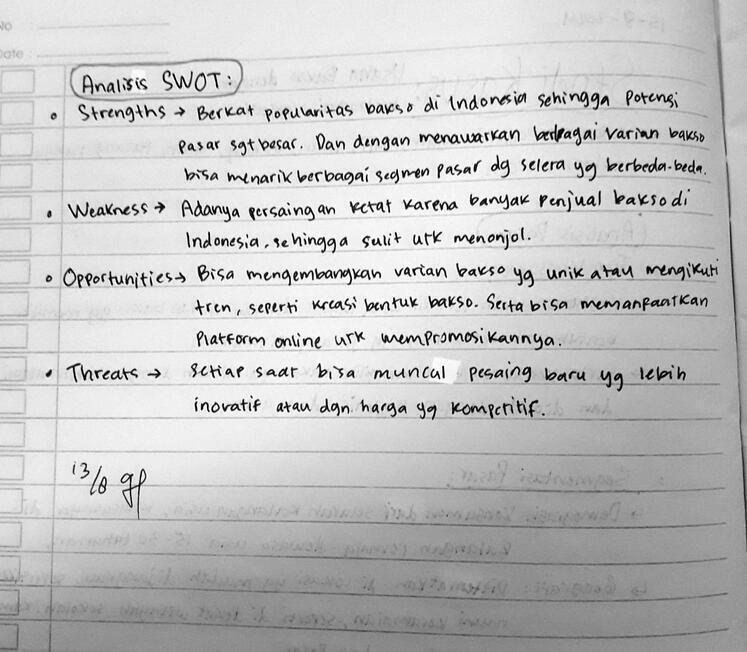 No
Date
Analisis SWOT:
• Strengths → Berkat popularitas bakso di Indonesia sehingga potensi
pasar sgt besar. Dan dengan menawarkan berbagai varian bakso
bisa menarik berbagai segmen pasar dg selera yg berbeda-beda.
• Weakness → Adanya persaingan ketat karena banyak penjual bakso di
Indonesia, sehingga sulit utk menonjol.
• Opportunities → Bisa mengembangkan varian bakso yg unik atau mengikuti
tren, seperti kreasi bentuk bakso. Serta bisa memanfaatkan
Platform online utk mempromosikannya.
• Threats → Setiap saat bisa muncul pesaing baru yg lebih
inovatif atau dgn harga yg kompetitif.
13/8